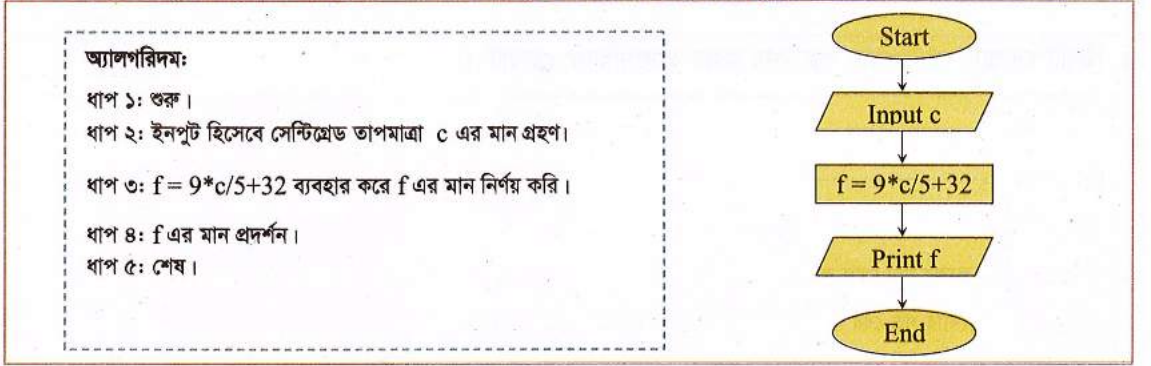 অ্যালগরিদমঃ
ধাপ ১: শুরু।
ধাপ ২: ইনপুট হিসেবে সেন্টিগ্রেড তাপমাত্রা c এর মান গ্রহণ।
ধাপ ৩: f = 9*c/5+32 ব্যবহার করে f এর মান নির্ণয় করি।
ধাপ ৪: f এর মান প্রদর্শন।
ধাপ ৫: শেষ।
Start
Input c
f = 9*c/5+32
Print f
End